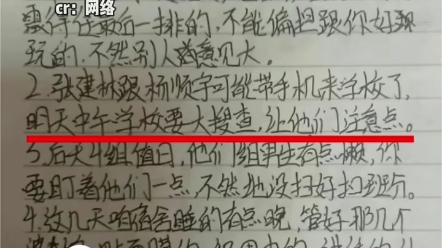 cr：网络
最后一排的，不能偏把跟你好
玩的，不然别人意见大。
2.张建林跟杨顺宇可能带手机来学校了，
明天中午学校要大搜查，让他们注意点。
3.后天4组值日，他们组男生有点懒，你
要盯着他们一点，不然地没扫好扣到分。
4.这几天咱宿舍睡的有点晚，管好那几个